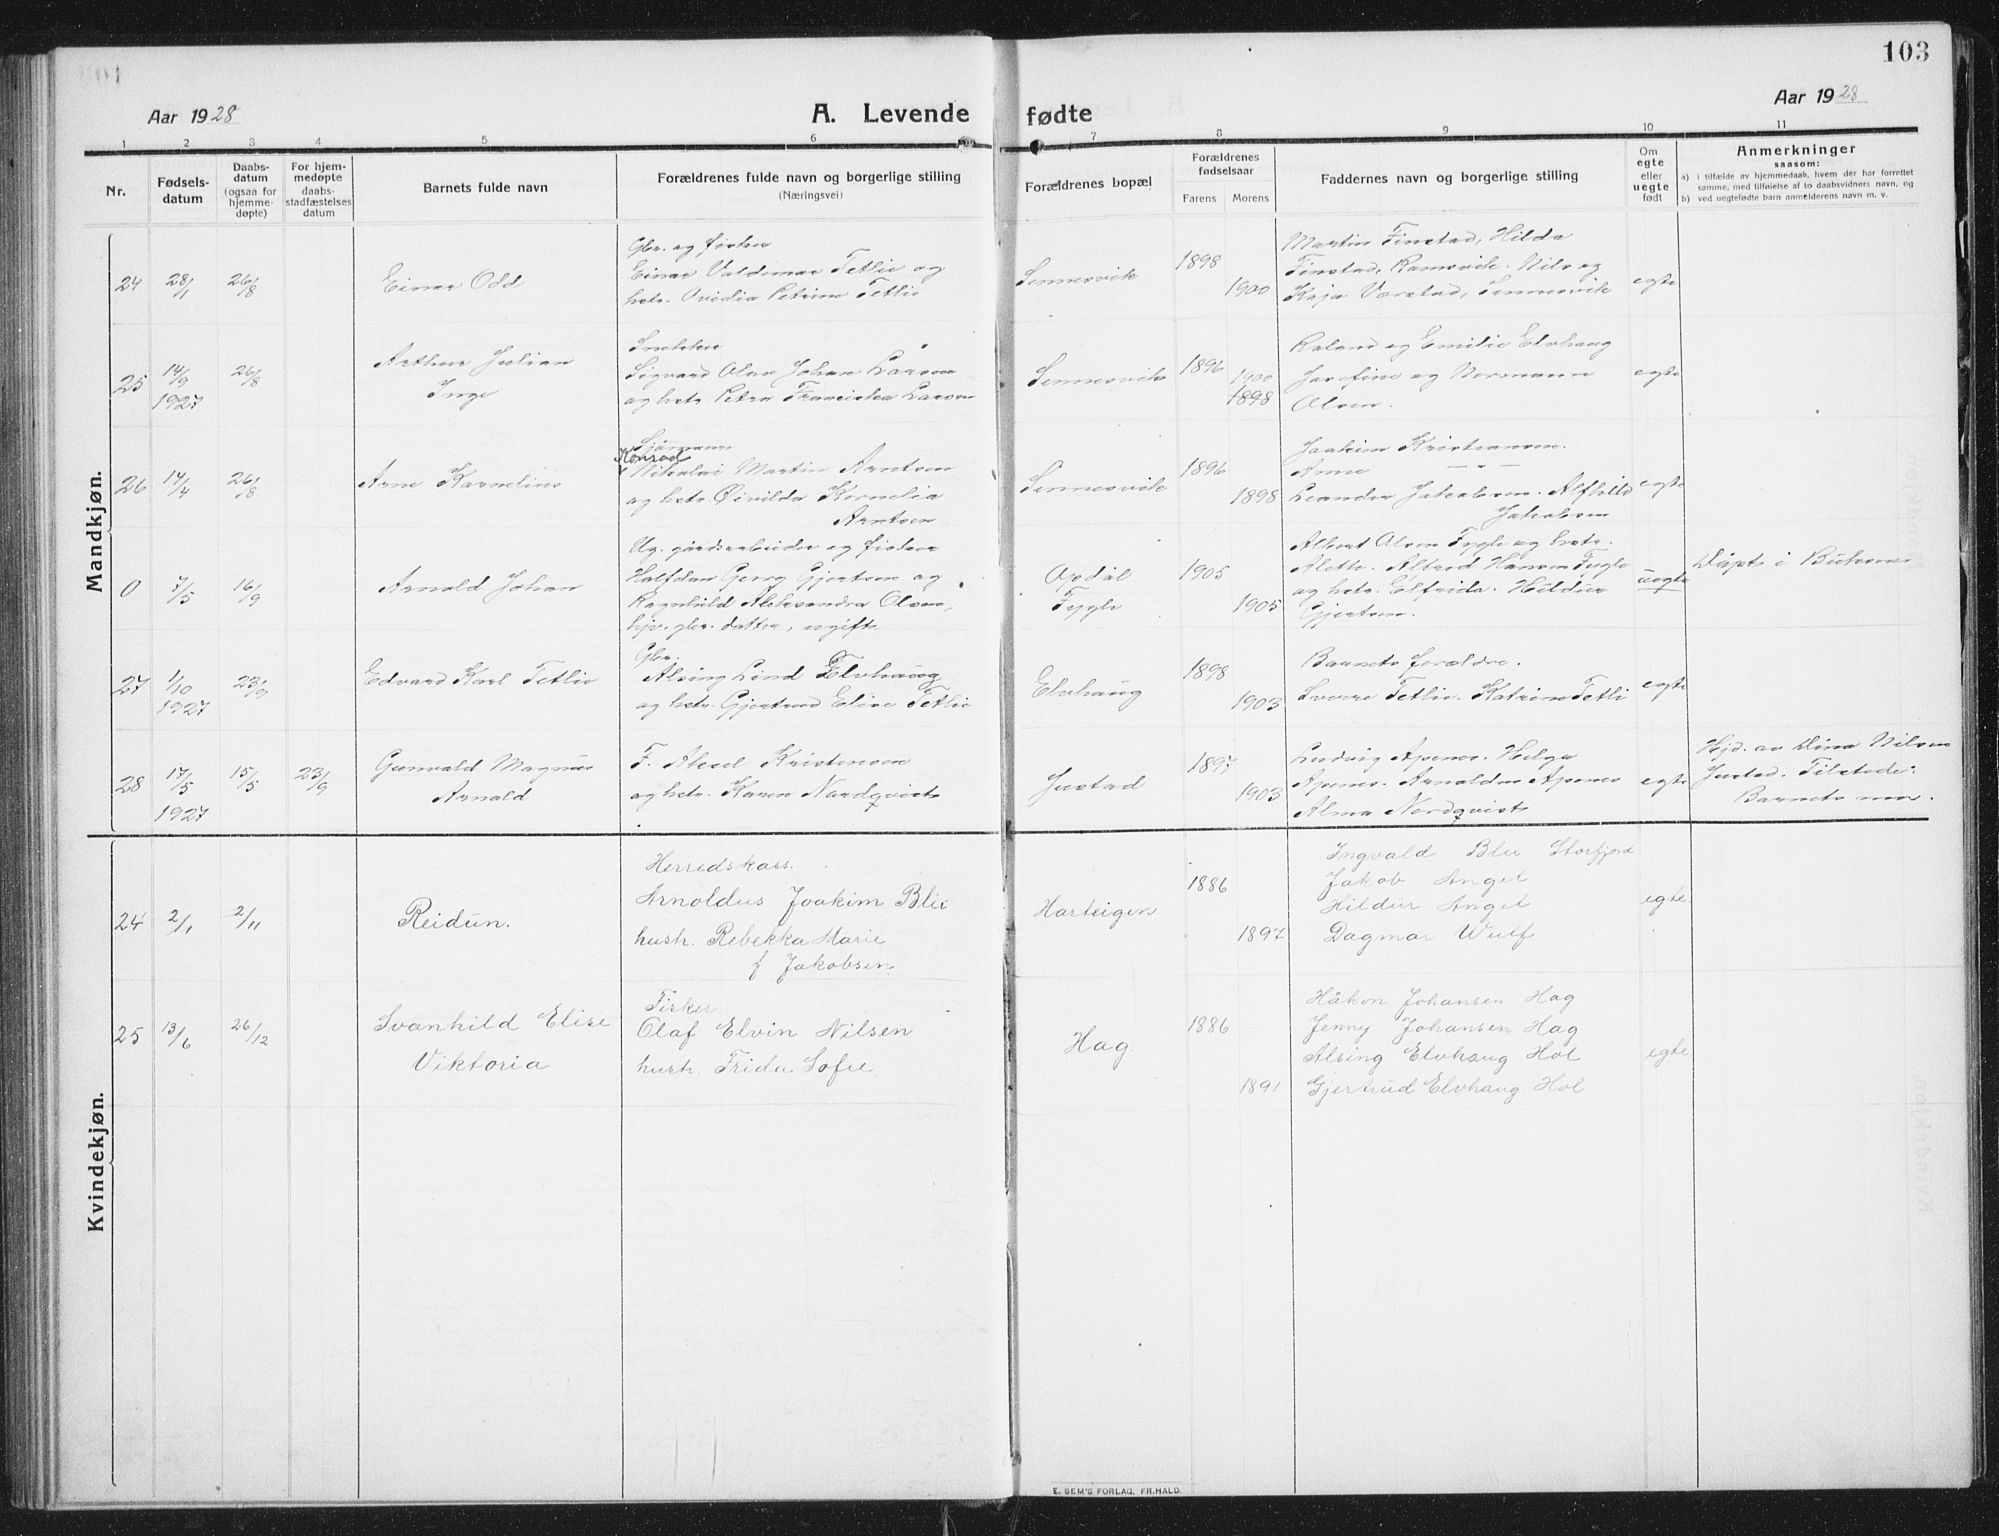 103
Aar 1928
A. Levende fødte
Aar 1928
1 2 3 4 5 6 7 8 9 10 11
Nr.
Fødsels-
datum
Daabs-
datum
(ogsaa for
hjemme-
døpte)
For hjem-
medøpte
daabs-
stadfæstelses
datum
Barnets fulde navn
Forældrenes fulde navn og borgerlige stilling
(Næringsvei)
Forældrenes bopæl
Forældrenes
fødselsaar
Farens Morens
Faddernes navn og borgerlige stilling
Om
egte
eller
uegte
født
Anmerkninger
saasom:
a) i tilfælde av hjemmedaab, hvem der har forrettet
samme, med tilføielse af to daabsvidners navn, og
b) ved uegtefødte barn anmelderens navn m. v.
Mandkjøn.
24 28/1 26/8
Einar Odd
Gbr. og fisker
Einar Valdemar Tetlie og
hstr. Ovidia Petrine Tetlie
Sennesvik
1898
1900
Martin Finstad, Hilda
Finstad, Ramsvik. Nils og
KajaVærstad, Sennesvik
egte
25 14/9 1927 26/8
Arthur Julian
Inge
Snekker
Sigvard Olav Johan Larsen
og hstr. Petra Franciska Larsen
Sennesvik
1896
1900
1898
Roland og Emilie Elvhaug
Josefine og Normann
Olsen.
egte
26 14/4 26/8
Arne Kornelius
Sjømann
Konrad
Nikolai Martin Arntsen
og hstr. Øivilda Kornelia
Arntsen
Sennesvik
1896
1898
Joakim Kristiansen.
Anne — " —
Leander Jakobsen. Alfhild
Jakobsen
egte
0 7/5 16/9
Arnold Johan
Ug. gårdsarbeider og fisker
Halfdan Georg Gjertsen og
Ragnhild Aleksandra Olsen,
hjv. gbr. datter, ugift
Opdøl
Fygle
1905
1905
Albert Olsen Fygle og hstr.
Alette. Alfred Hansen Fygle
og hstr. Elfrida. Hildur
Gjertsen.
uegte
Døpt i Buksnes
27 1/10 1927 23/9
Edvard Karl Tetlie
Gbr.
Alsing Lind Elvhaug
og hstr. Gjertrud Elise Tetlie
Elvhaug
1898
1903
Barnets forældre.
Sverre Tetlie. Katrine Tetli
egte
28 17/5 1927 15/5 23/9
Gunvald Magnus
Arnold
F. Aksel Kristensen
og hstr. Karen Nordqvist
Justad
1897
1903
Ludvig Apenes. Helga
Apenes. Arnoldus Apenes
Alma Nordqvist
egte
Hjd. av Dina Nilsen
Justad. Tilstede:
Barnets mor.
Kvindekjøn.
24 2/1 2/11
Reidun.
Herredskass.
Arnoldus Joakim Blie
hustr. Rebekka Marie
f Jakobsen
Harteigen
1886
1897
Ingvald Blie Storfjord
Jakob Angel
Hildur Angel
Dagmar Wulf
egte
25 13/6 26/12
Svanhild Elise
Viktoria
Fisker
Olaf Elvin Nilsen
hustr. Frida Sofie
Hag
1886
1891
Håkon Johansen Hag
Jenny Johansen Hag
Alsing Elvhaug Hol
Gjertrud Elvhaug Hol
egte
E. SEM'S FORLAG, FR.HALD.